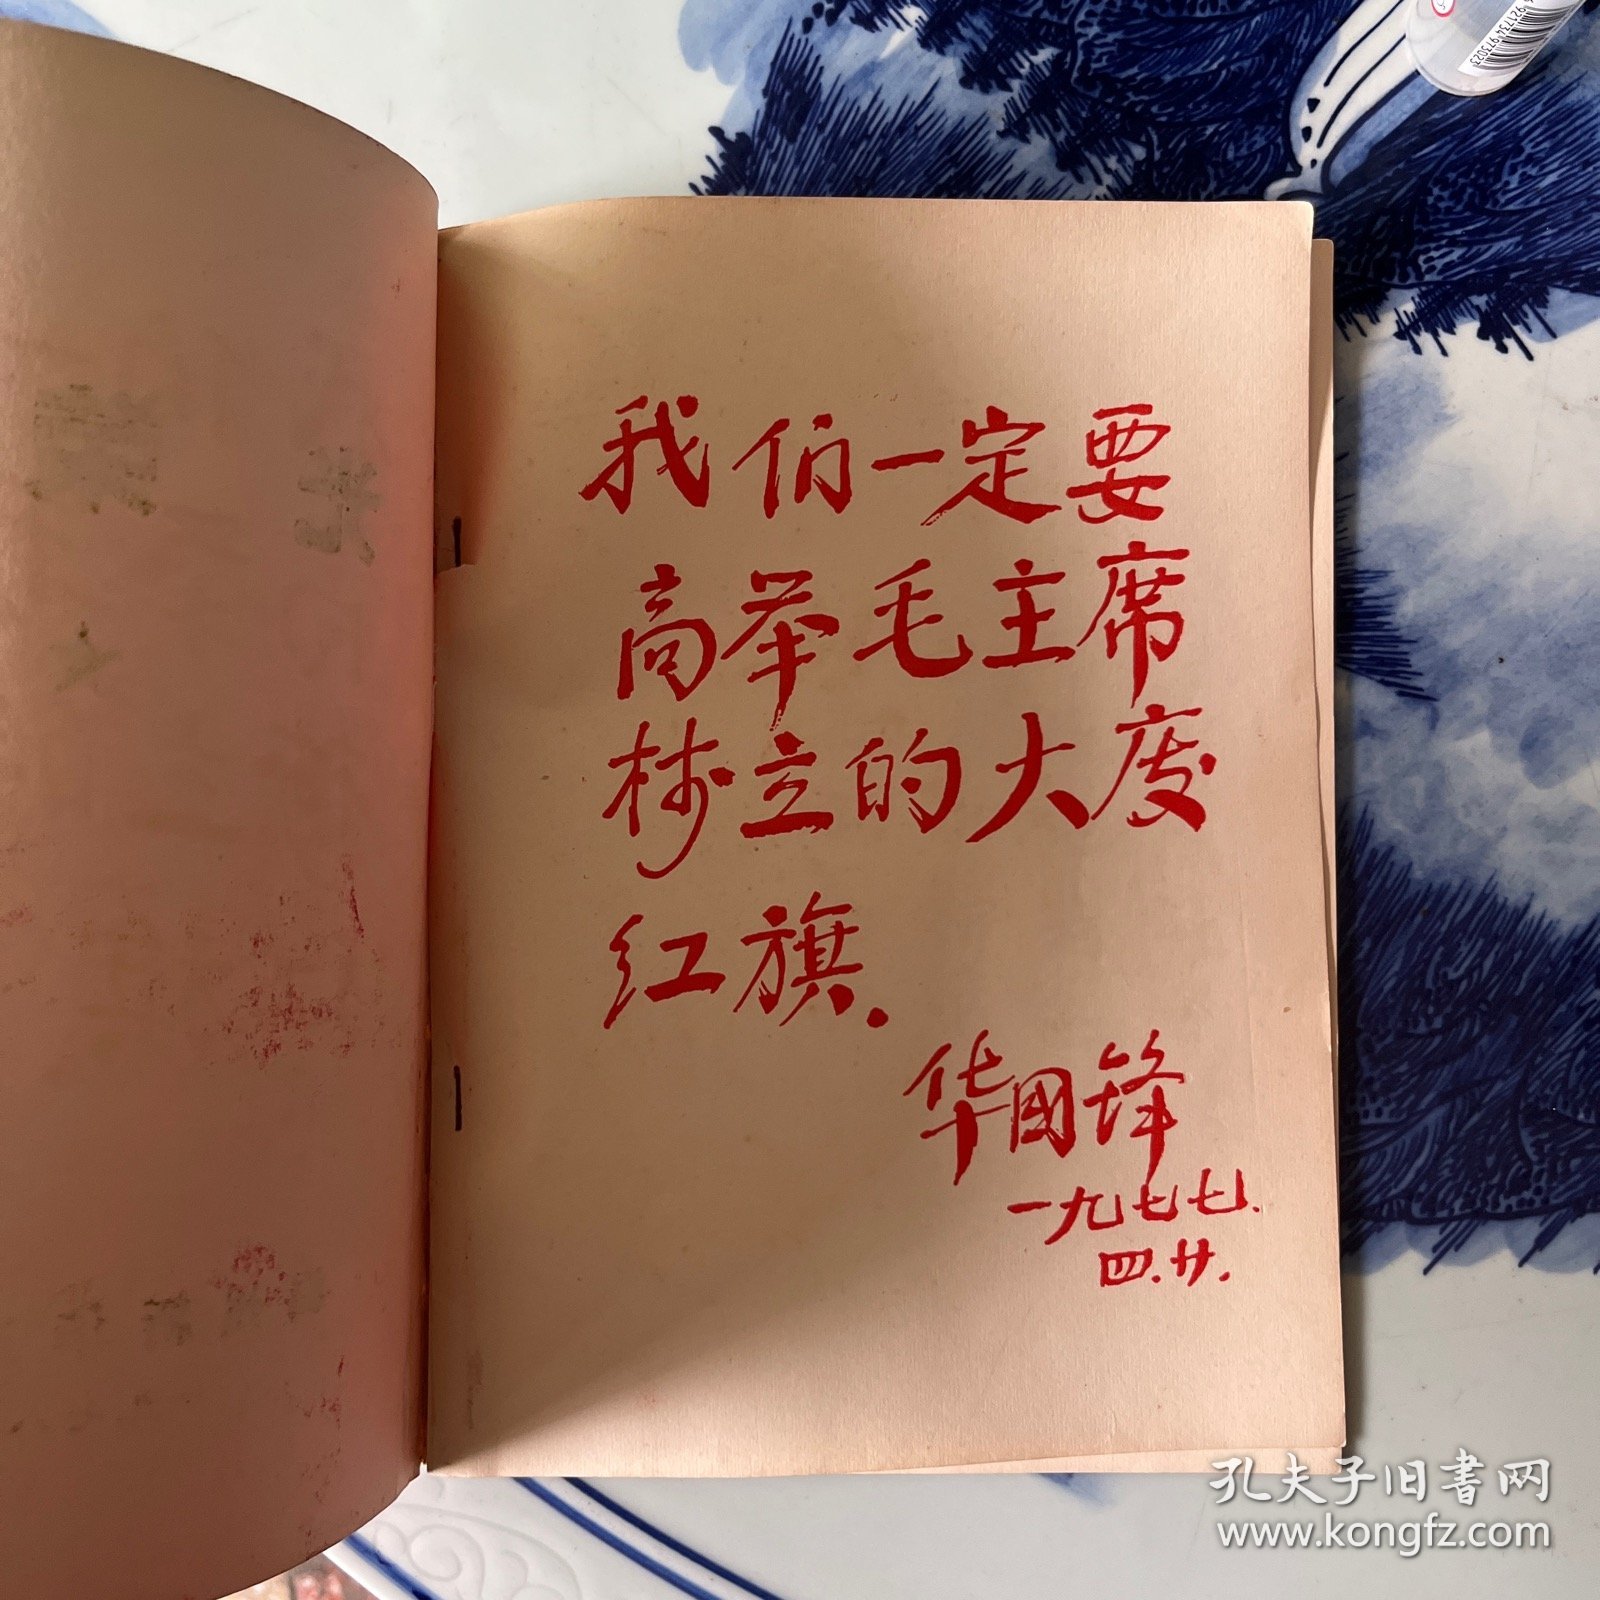 我们一定要
高举毛主席
树立的大庆
红旗.
华国锋
一九七七.
四.廿.
921734 973023
孔夫子旧书网
www.kongfz.com